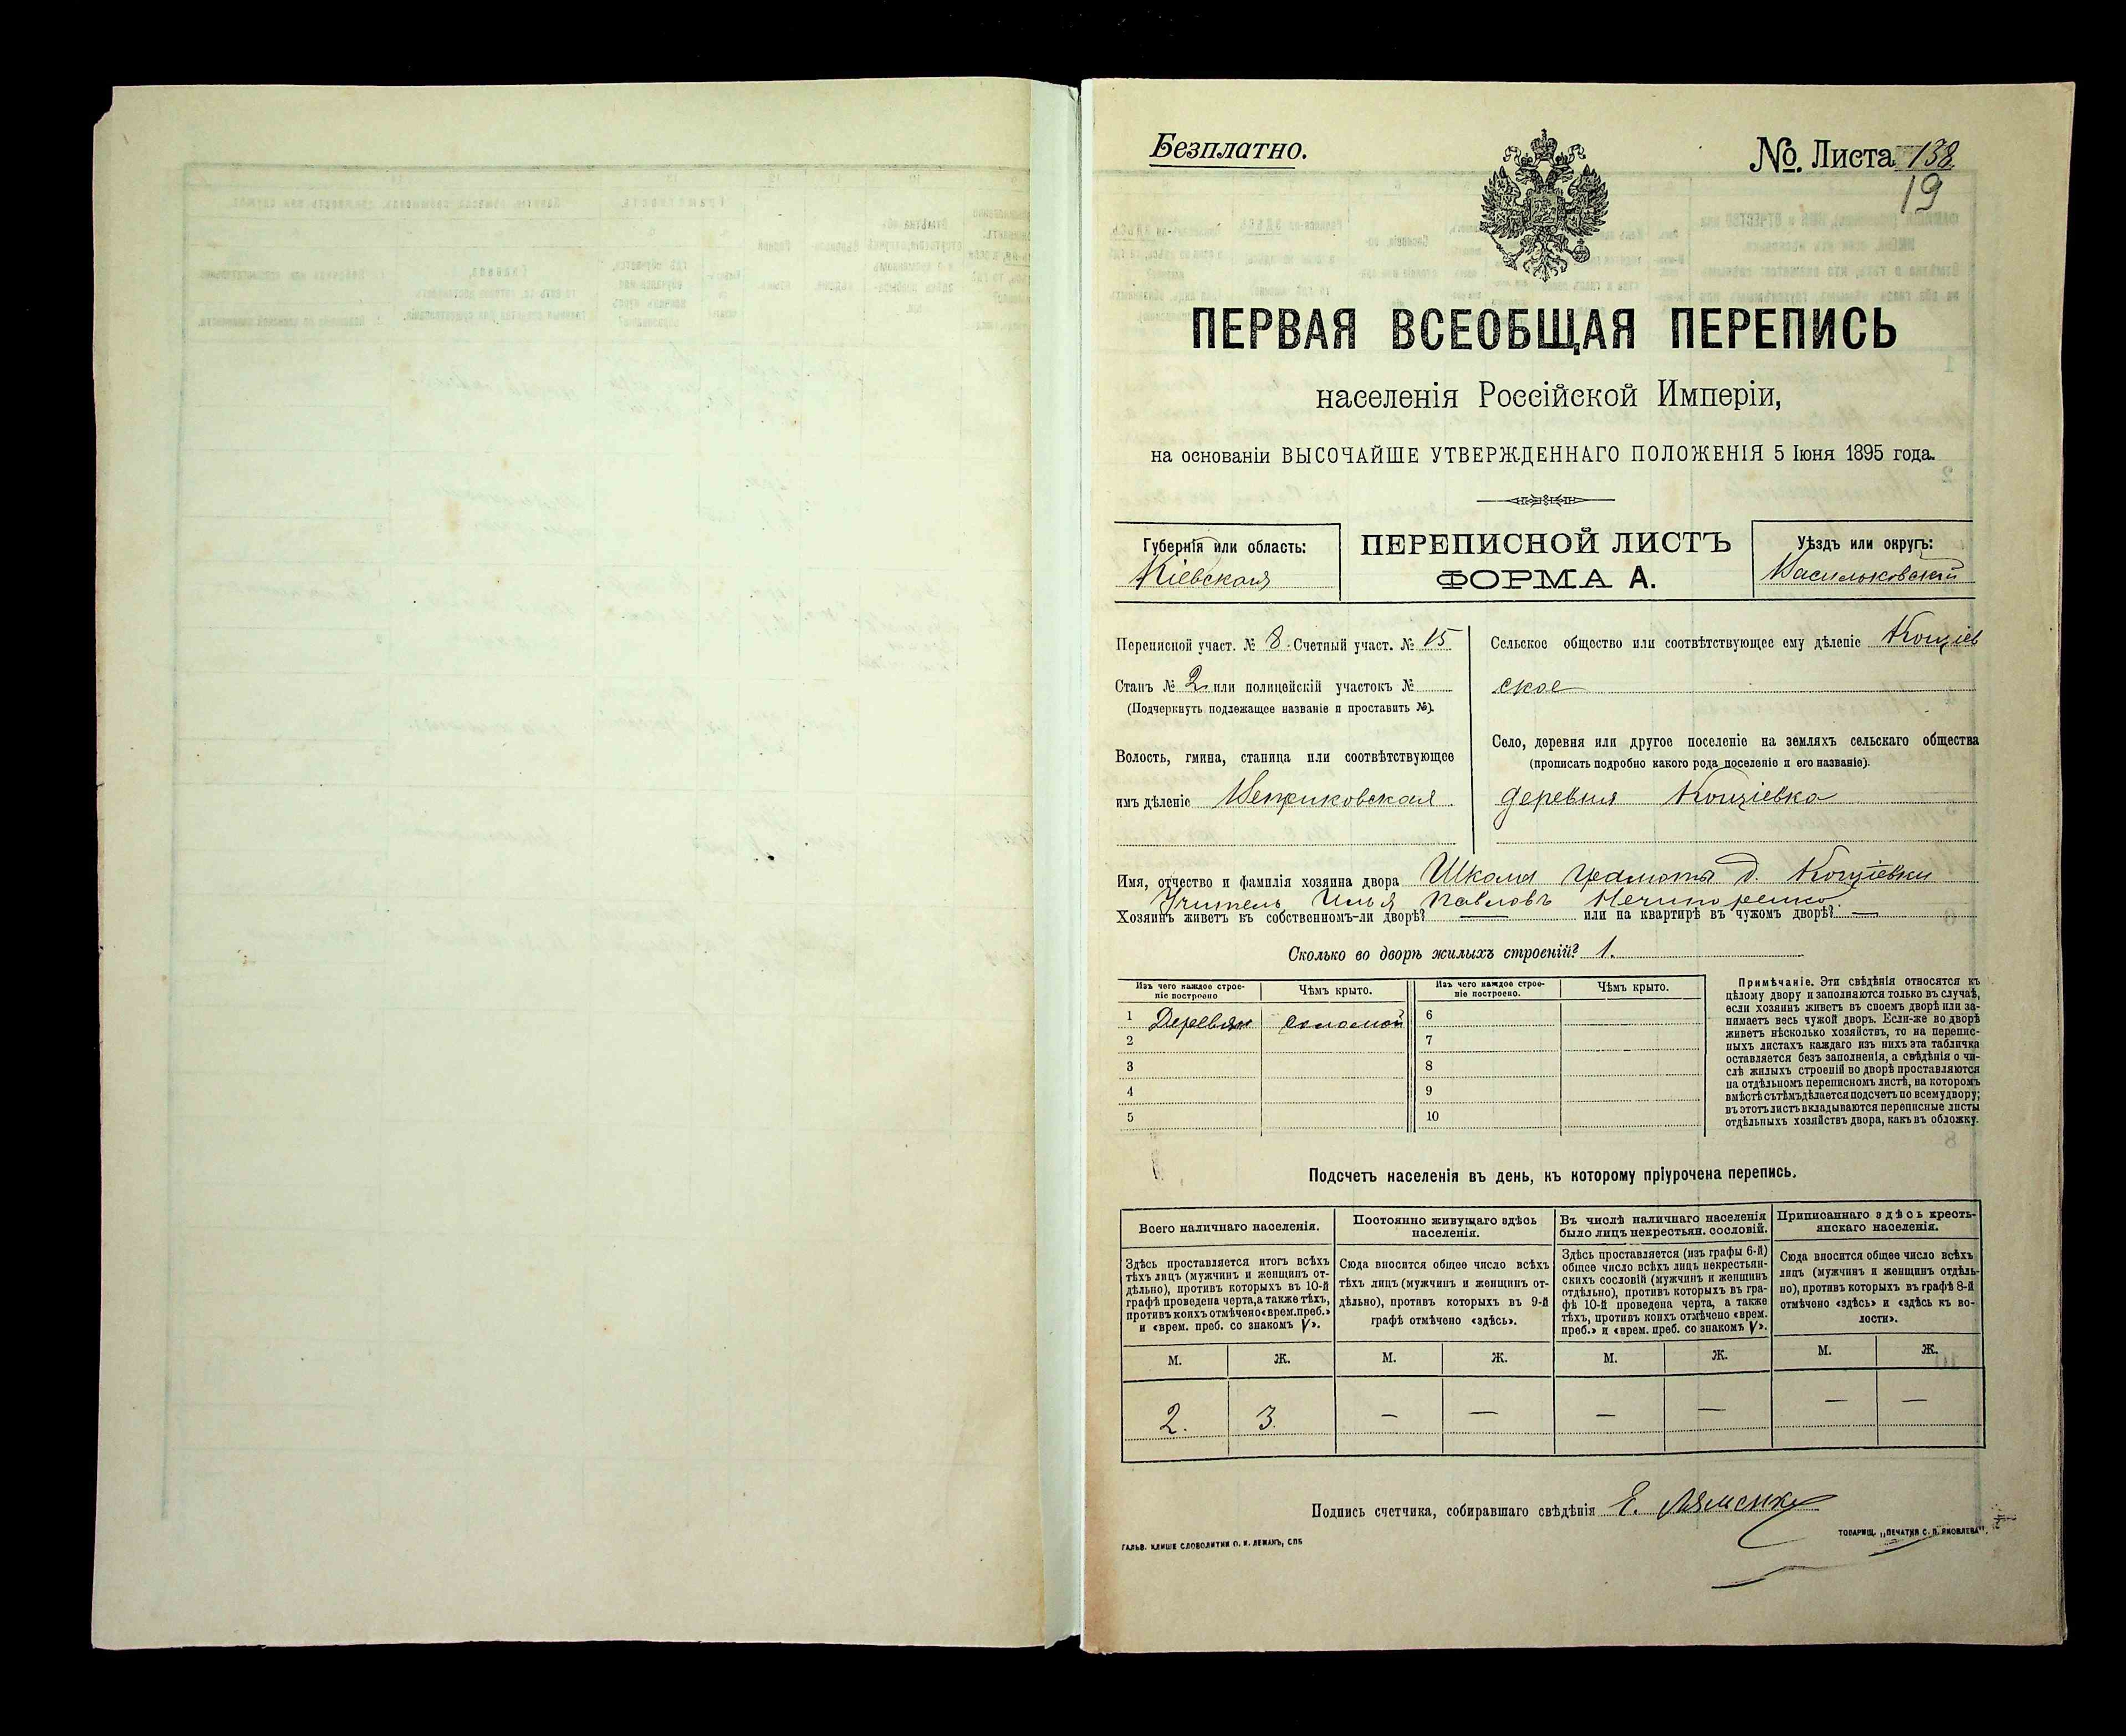 Безплатно.
№ Листа 138
19
ПЕРВАЯ ВСЕОБЩАЯ ПЕРЕПИСЬ
населенія Россійской Имперіи,
на основаніи ВЫСОЧАЙШЕ УТВЕРЖДЕННАГО ПОЛОЖЕНІЯ 5 Іюня 1895 года.
Губернія или область:
Кіевская
ПЕРЕПИСНОЙ ЛИСТЪ
ФОРМА А.
Уѣздъ или округъ:
Васильковскій
Переписной участ. № 8. Счетный участ. № 15
Станъ № 2 или полицейскій участокъ №
(Подчеркнуть подлежащее названіе и проставить №).
Волость, гмина, станица или соотвѣтствующее
имъ дѣленіе
Сельское общество или соотвѣтствующее ему дѣленіе Кощіев
ское
Село, деревня или другое поселеніе на земляхъ сельскаго общества
(прописать подробно какого рода поселеніе и его названіе).
деревня Кощіевка
Имя, отчество и фамилія хозяина двора Школа грамоты д. Кощіевки
Учитель Илья Павловъ Нечипоренко
Хозяинъ живетъ въ собственномъ-ли дворѣ? — или на квартирѣ въ чужомъ дворѣ? —
Сколько во дворѣ жилыхъ строеній? 1.
Изъ чего каждое строе-
ніе построено
Чѣмъ крыто.
Изъ чего каждое строе-
ніе построено.
Чѣмъ крыто.
1 Деревян соломой 6
2 7
3 8
4 9
5 10
Примѣчаніе. Эти свѣдѣнія относятся къ
цѣлому двору и заполняются только въ случаѣ,
если хозяинъ живетъ въ своемъ дворѣ или за-
нимаетъ весь чужой дворъ. Если-же во дворѣ
живетъ нѣсколько хозяйствъ, то на перепис-
ныхъ листахъ каждаго изъ нихъ эта табличка
оставляется безъ заполненія, а свѣдѣнія о чи-
слѣ жилыхъ строеній во дворѣ проставляются
на отдѣльномъ переписномъ листѣ, на которомъ
вмѣстѣ съ тѣмъ дѣлается подсчетъ по всему двору;
въ этотъ листъ вкладываются переписные листы
отдѣльныхъ хозяйствъ двора, какъ въ обложку.
Подсчетъ населенія въ день, къ которому пріурочена перепись.
Всего наличнаго населенія.
Здѣсь проставляется итогъ всѣхъ
тѣхъ лицъ (мужчинъ и женщинъ от-
дѣльно), противъ которыхъ въ 10-й
графѣ проведена черта, а также тѣхъ,
противъ коихъ отмѣчено «врем. преб.»
и «врем. преб. со знакомъ V».
Постоянно живущаго здѣсь
населенія.
Сюда вносится общее число всѣхъ
тѣхъ лицъ (мужчинъ и женщинъ от-
дѣльно), противъ которыхъ въ 9-й
графѣ отмѣчено «здѣсь».
Въ числѣ наличнаго населенія
было лицъ некрестьян. сословій.
Здѣсь проставляется (изъ графы 6-й)
общее число всѣхъ лицъ некрестьян-
скихъ сословій (мужчинъ и женщинъ
отдѣльно), противъ которыхъ въ гра-
фѣ 10-й проведена черта, а также
тѣхъ, противъ коихъ отмѣчено «врем.
преб.» и «врем. преб. со знакомъ V».
Приписаннаго здѣсь кресть-
янскаго населенія.
Сюда вносится общее число всѣхъ
лицъ (мужчинъ и женщинъ отдѣль-
но), противъ которыхъ въ графѣ 8-й
отмѣчено «здѣсь» и «здѣсь къ во-
лости».
М. Ж. М. Ж. М. Ж. М. Ж.
2. 3. — — — — — —
Подпись счетчика, собиравшаго свѣдѣнія Е.
ГАЛЬВ. КЛИШЕ СЛОВОЛИТНИ О. И. ЛЕМАНЪ, СПБ
ТОВАРИЩ. „ПЕЧАТНЯ С. П. ЯКОВЛЕВА".